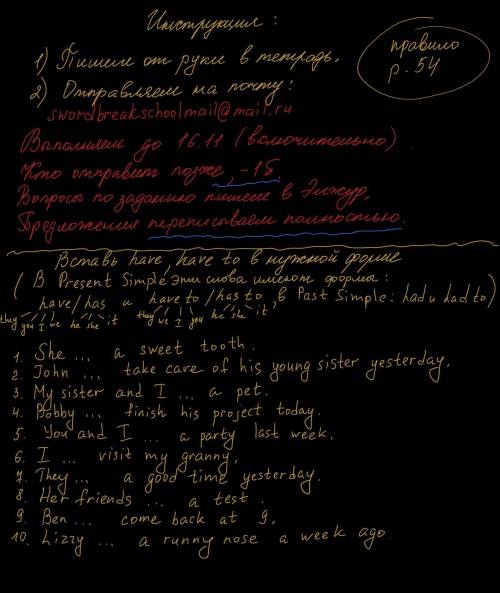 Инструкция:
1) Пишем от руки в тетрадь.
2) Отправляем на почту:
swordbreakschoolmail@mail.ru
правило
p. 54
Выполняем до 16.11 (включительно).
Кто отправит позже, -1б.
Вопросы по заданию пишем в Элжур.
Предложения переписываем полностью.
Вставь have, have to в нужной форме
( В Present Simple эти слова имеют формы:
have/has и have to/has to, в Past Simple: had и had to)
they you I we he she it they we I you he she it
1. She ... a sweet tooth.
2. John ... take care of his young sister yesterday.
3. My sister and I ... a pet.
4. Bobby ... finish his project today.
5. You and I ... a party last week.
6. I ... visit my granny.
7. They ... a good time yesterday.
8. Her friends ... a test.
9. Ben ... come back at 9.
10. Lizzy ... a runny nose a week ago.